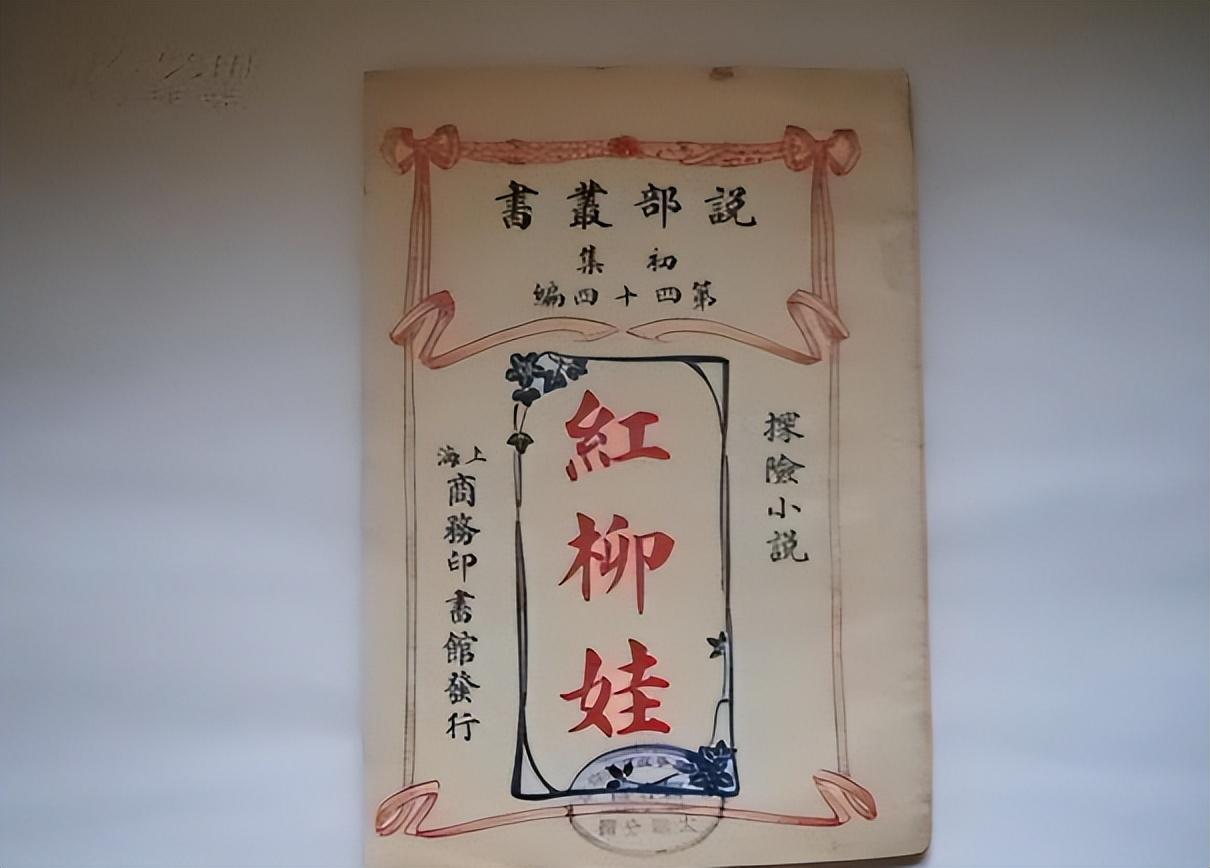 說部叢書
初集
第四十四編
探險小説
紅柳娃
上海
商務印書館發行